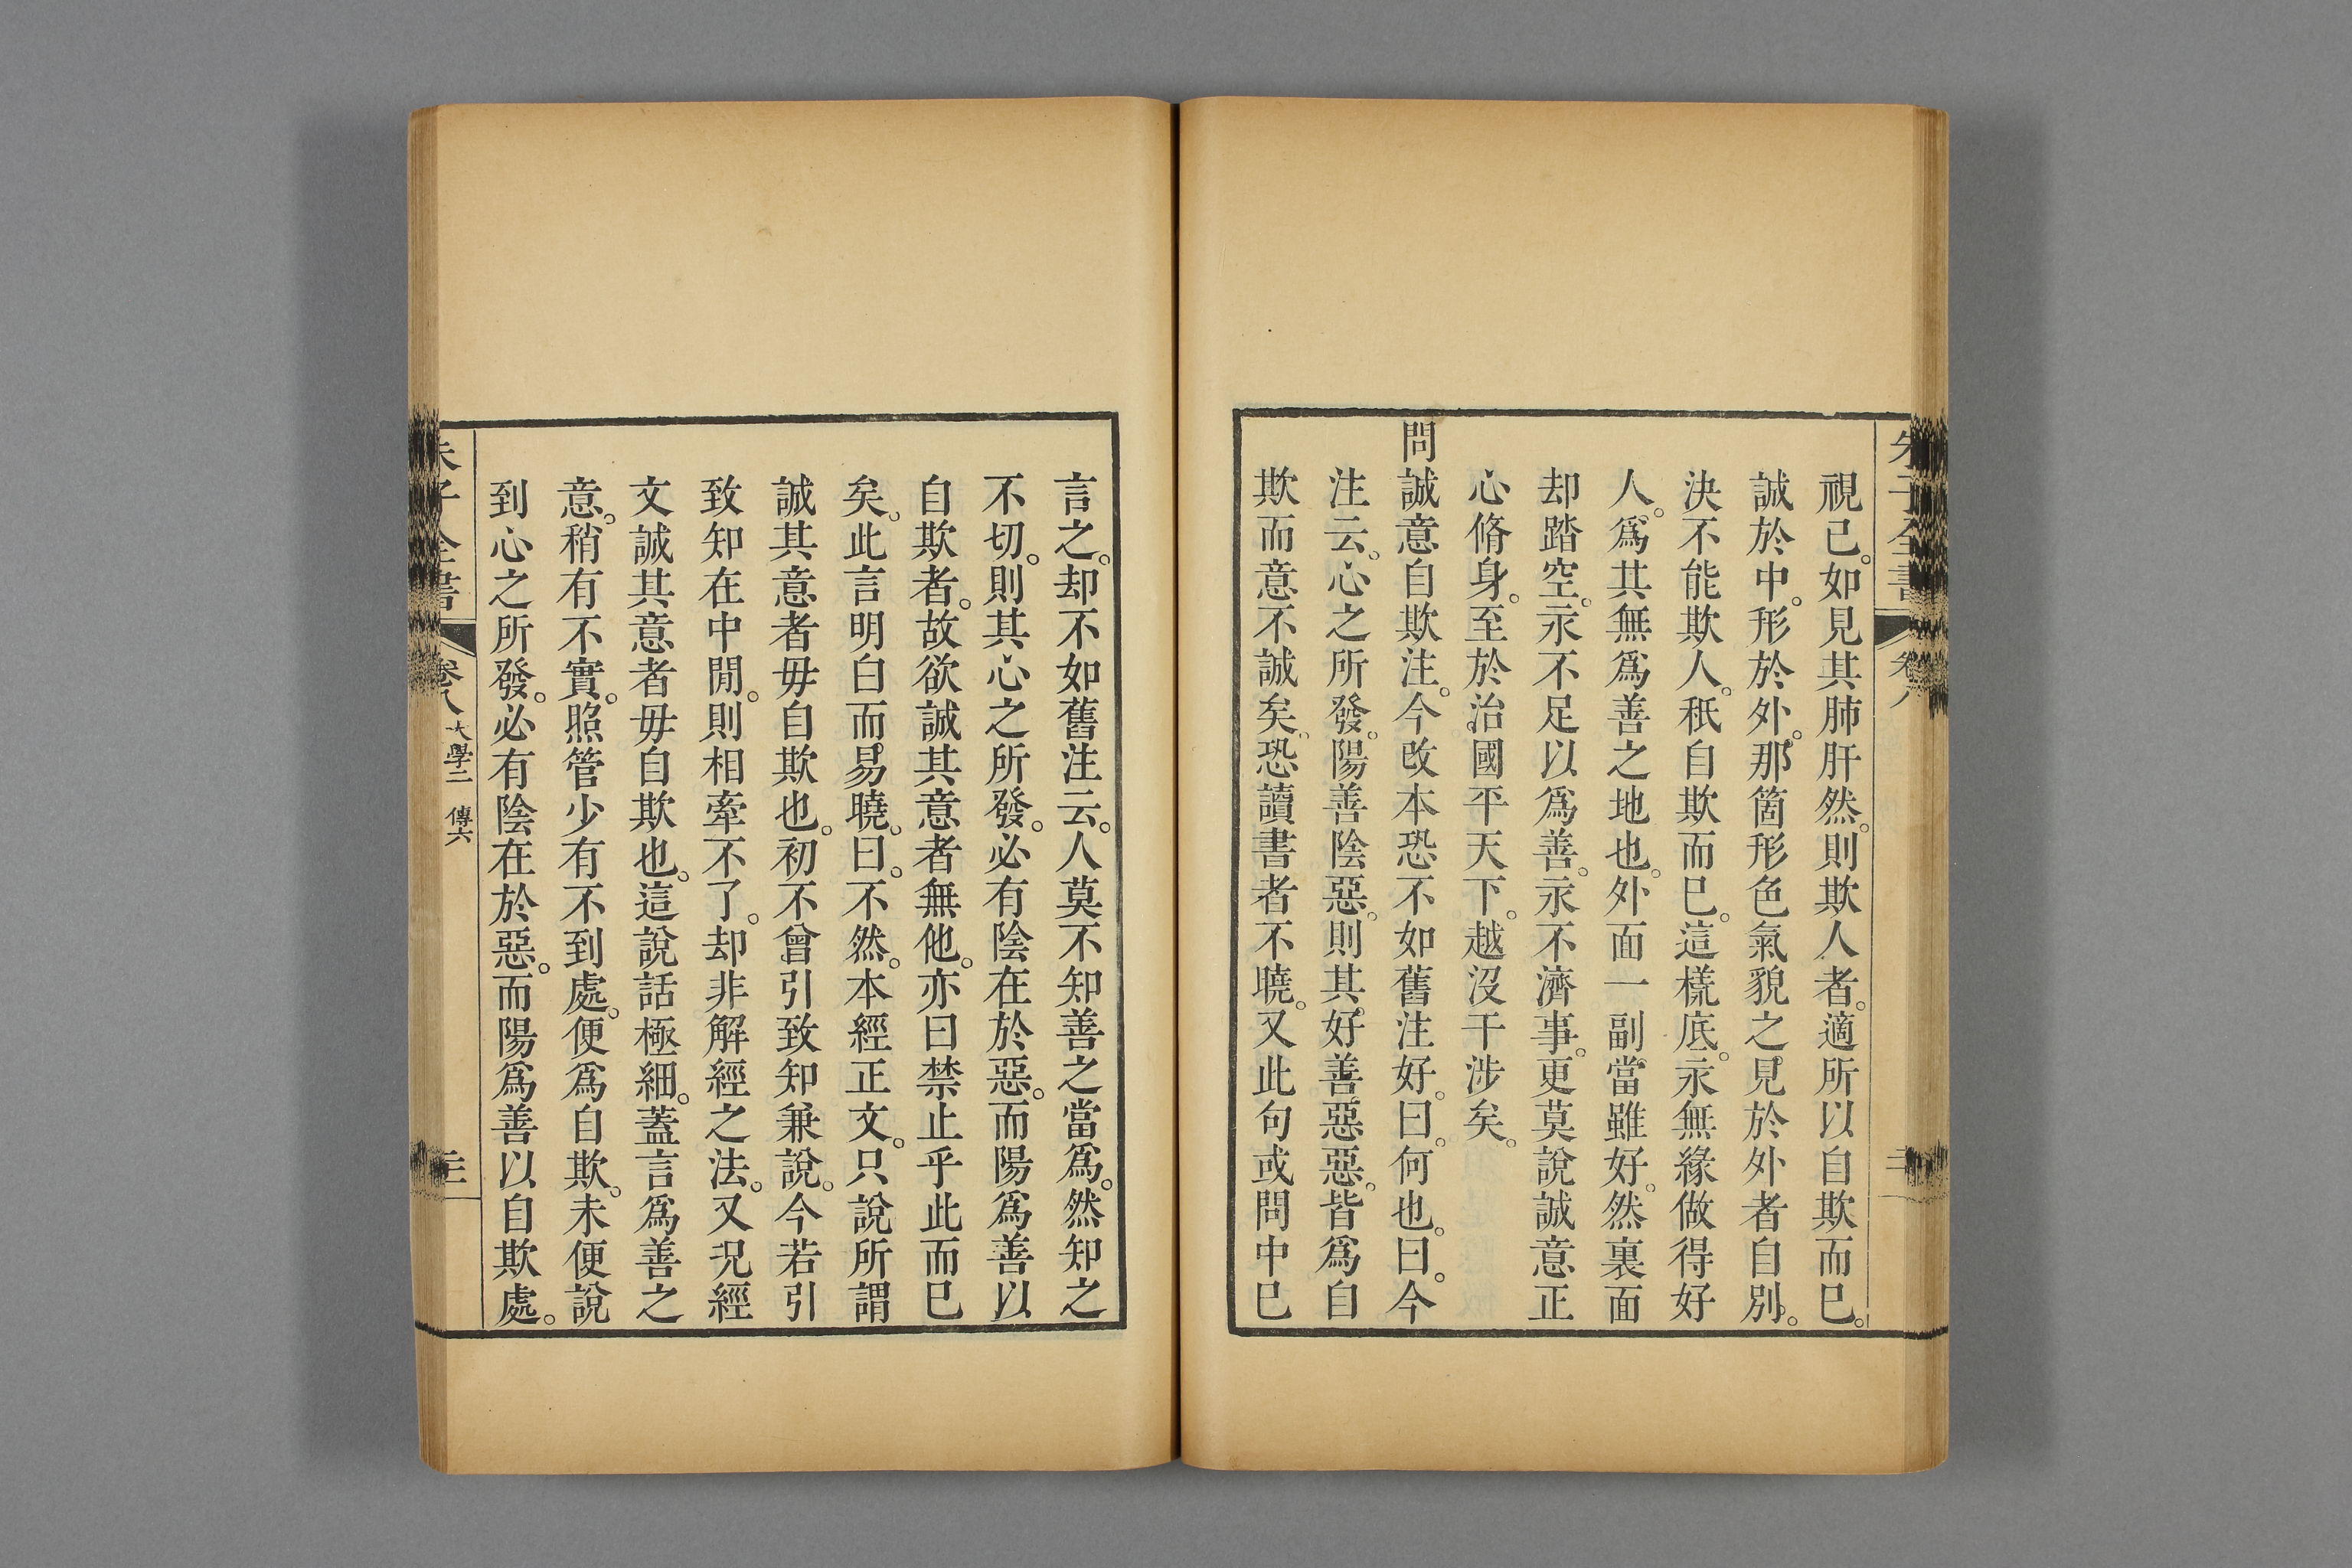 視己。如見其肺肝然。則欺人者。適所以自欺而已。
誠於中。形於外。那箇形色氣貌之見於外者自別。
決不能欺人。秖自欺而已。這樣底。永無緣做得好
人。爲其無爲善之地也。外面一副當雖好。然裏面
却踏空。永不足以爲善。永不濟事。更莫說誠意正
心脩身。至於治國平天下。越沒干涉矣。
問誠意自欺注。今改本恐不如舊注好。曰。何也。曰。今
注云。心之所發。陽善陰惡。則其好善惡惡。皆爲自
欺而意不誠矣。恐讀書者不曉。又此句或問中已
言之。却不如舊注云。人莫不知善之當爲。然知之
不切。則其心之所發。必有陰在於惡。而陽爲善以
自欺者。故欲誠其意者無他。亦曰禁止乎此而已
矣。此言明白而易曉。曰。不然。本經正文。只說所謂
誠其意者毋自欺也。初不曾引致知兼說。今若引
致知在中閒。則相牽不了。却非解經之法。又況經
文誠其意者毋自欺也。這說話極細。蓋言爲善之
意。稍有不實。照管少有不到處。便爲自欺。未便說
到心之所發。必有陰在於惡。而陽爲善以自欺處。
朱子全書 卷八 大學二 傳六